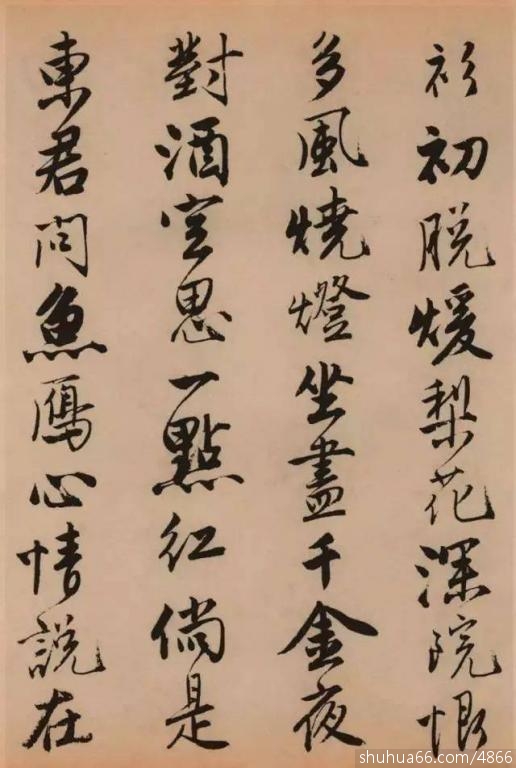 衫初脱煖梨花深院恨
多風燒燈坐盡千金夜
對酒空思一點紅倘是
東君問魚鴈心情説在
shuhua66.com/4866